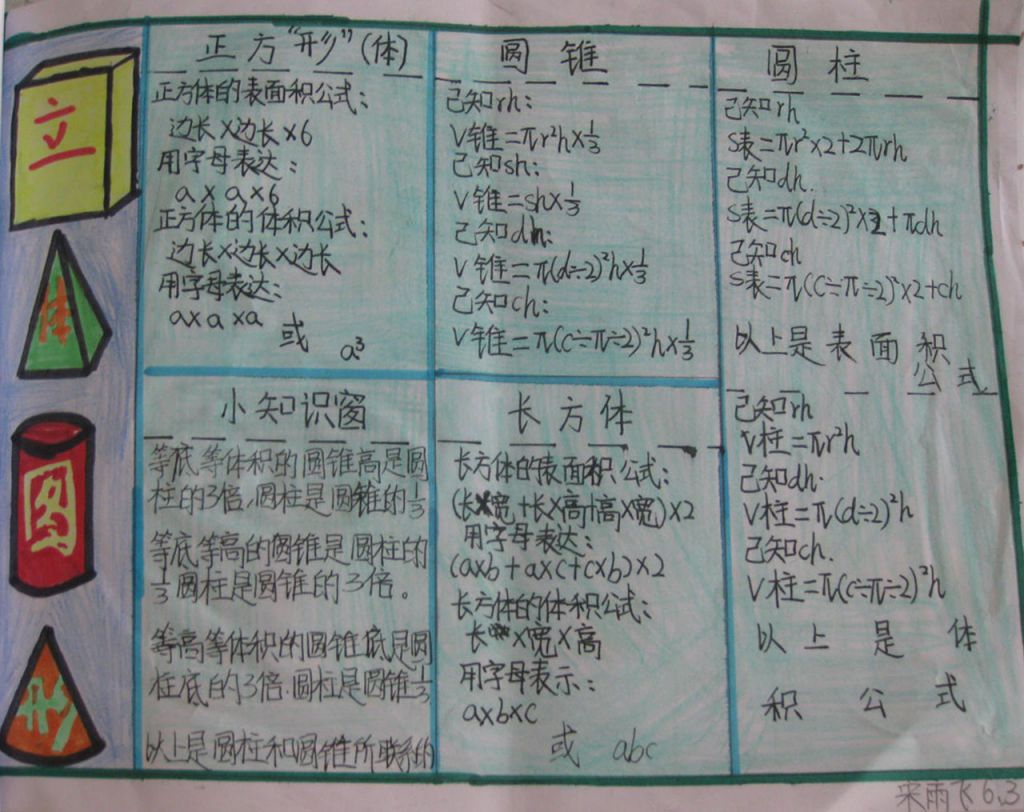 立
体
图
形
正方“形”(体)
正方体的表面积公式：
边长×边长×6
用字母表达：
a×a×6
正方体的体积公式：
边长×边长×边长
用字母表达：
a×a×a
或 a³
圆锥
己知rh：
V锥=πr²h×1/3
己知sh：
V锥=sh×1/3
己知dh：
V锥=π(d÷2)²h×1/3
己知ch：
V锥=π(c÷π÷2)²h×1/3
圆柱
己知rh
S表=πr²×2+2πrh
己知dh.
S表=π(d÷2)²×2+πdh
己知ch
S表=π(C÷π÷2)²×2+ch
以上是表面积
公式
己知rh
V柱=πr²h
己知dh.
V柱=π(d÷2)²h
己知ch.
V柱=π(c÷π÷2)²h
以上是体
积公式
小知识窗
等底等体积的圆锥高是圆
柱的3倍.圆柱是圆锥的1/3
等底等高的圆锥是圆柱的
1/3圆柱是圆锥的3倍。
等高等体积的圆锥底是圆
柱底的3倍.圆柱是圆锥1/3
以上是圆柱和圆锥所联系的
长方体
长方体的表面积公式：
(长×宽+长×高+高×宽)×2
用字母表达：
(a×b+a×c+c×b)×2
长方体的体积公式：
长×宽×高
用字母表示：
a×b×c
或 abc
来雨飞6.3